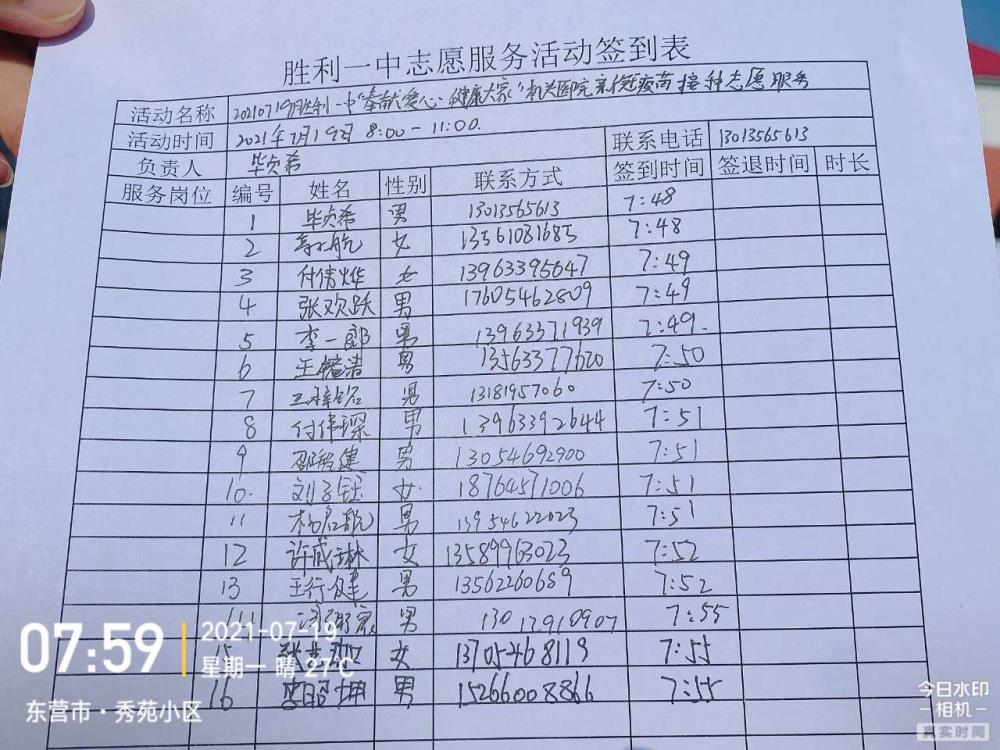 胜利一中志愿服务活动签到表
活动名称 20210719胜利一中"奉献爱心·健康大家"机关医院新冠疫苗接种志愿服务
活动时间 2021年7月19日 8:00-11:00. 联系电话 13013565613
负责人 毕贞希 签到时间 签退时间 时长
服务岗位 编号 姓名 性别 联系方式
1 毕贞希 男 13013565613 7:48
2 女 13561081685 7:48
3 付倩烨 女 13963395647 7:49
4 张欢跃 男 17605462809 7:49
5 李一郎 男 13963371939 7:49
6 男 13563377620 7:50
7 男 13181957060 7:50
8 付伟琛 男 13963392644 7:51
9 男 13054692900 7:51
10. 刘子钰 女 18764571006 7:51
11 杨启航 男 13954622023 7:51
12 许咸琳 女 13589963023 7:52
13 王行健 男 13562260689 7:52
男 7:55
15 女 13705468119 7:55
16 男 15266008866 7:55
07:59
2021-07-19
星期一 晴 27℃
东营市·秀苑小区
今日水印
相机
真实时间